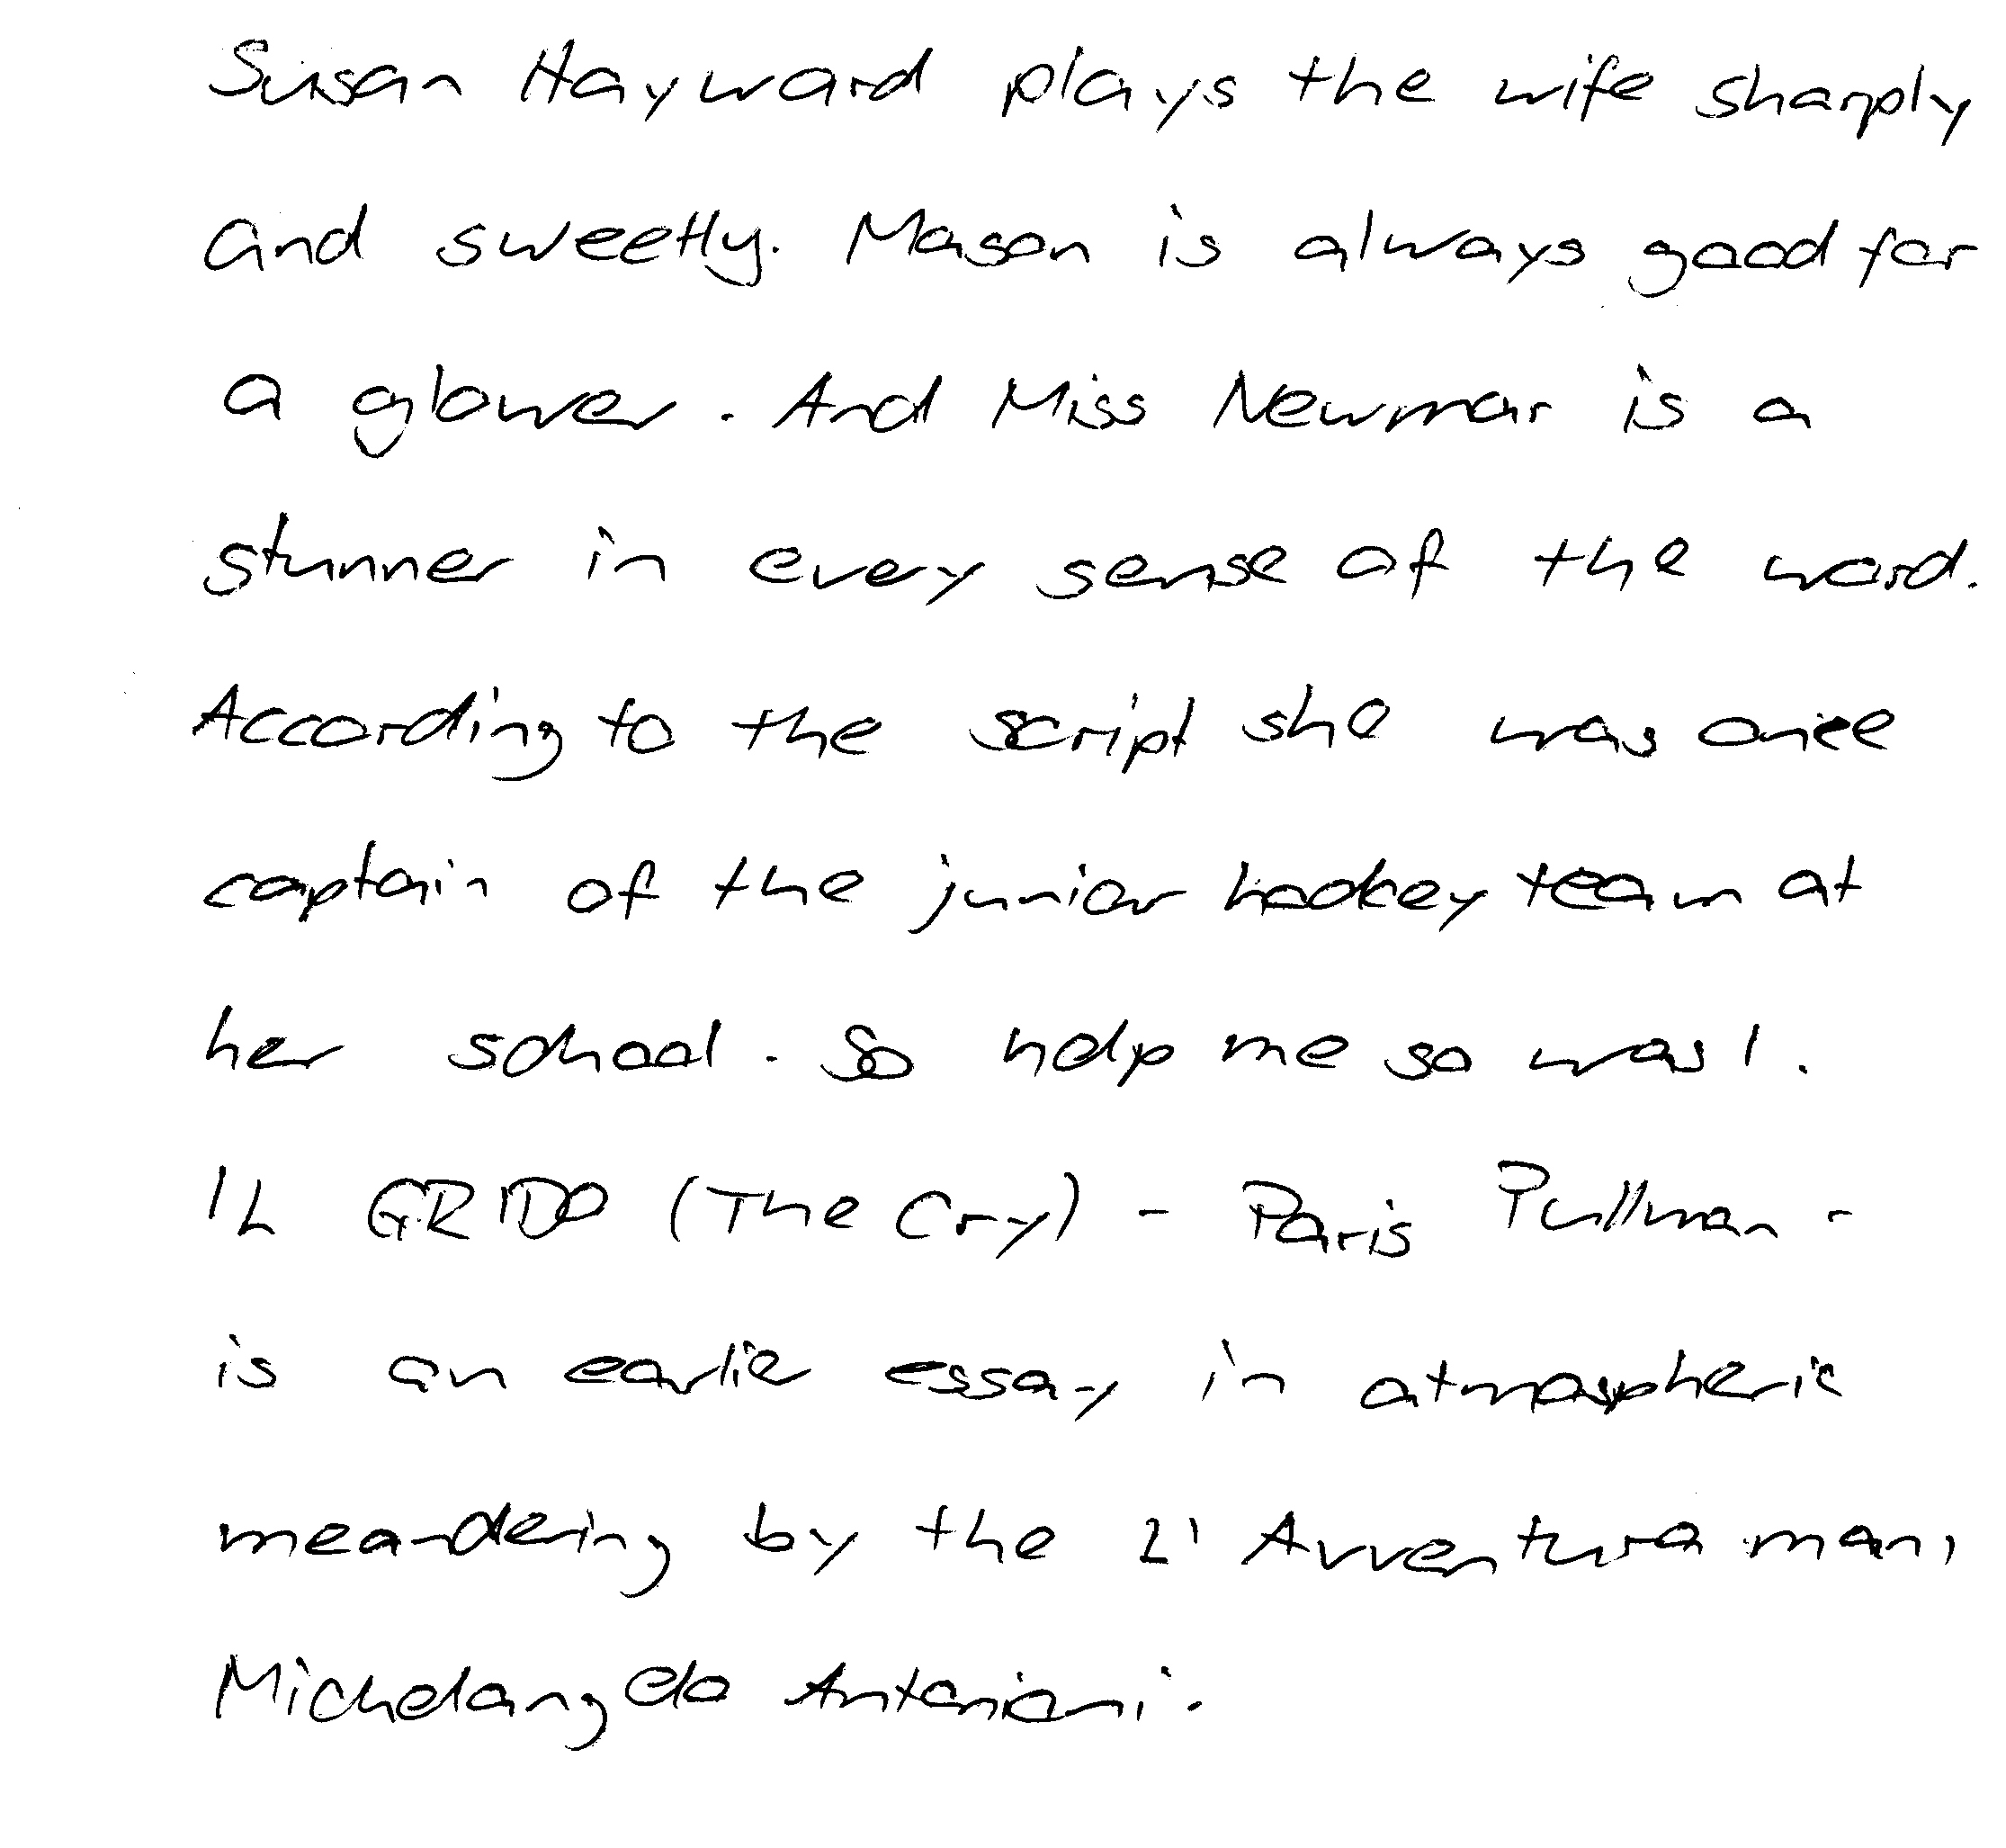 Susan Hayward plays the wife sharply
and sweetly. Mason is always good for
a glower. And Miss Newmar is a
stunner in every sense of the word.
According to the script she was once
captain of the junior hockey team at
her school. So help me so was I.
IL GRIDO (The Cry) - Paris Pullman -
is an earlie essay in atmospheric
meandering by the L'Avventura man,
Michelangelo Antonioni.